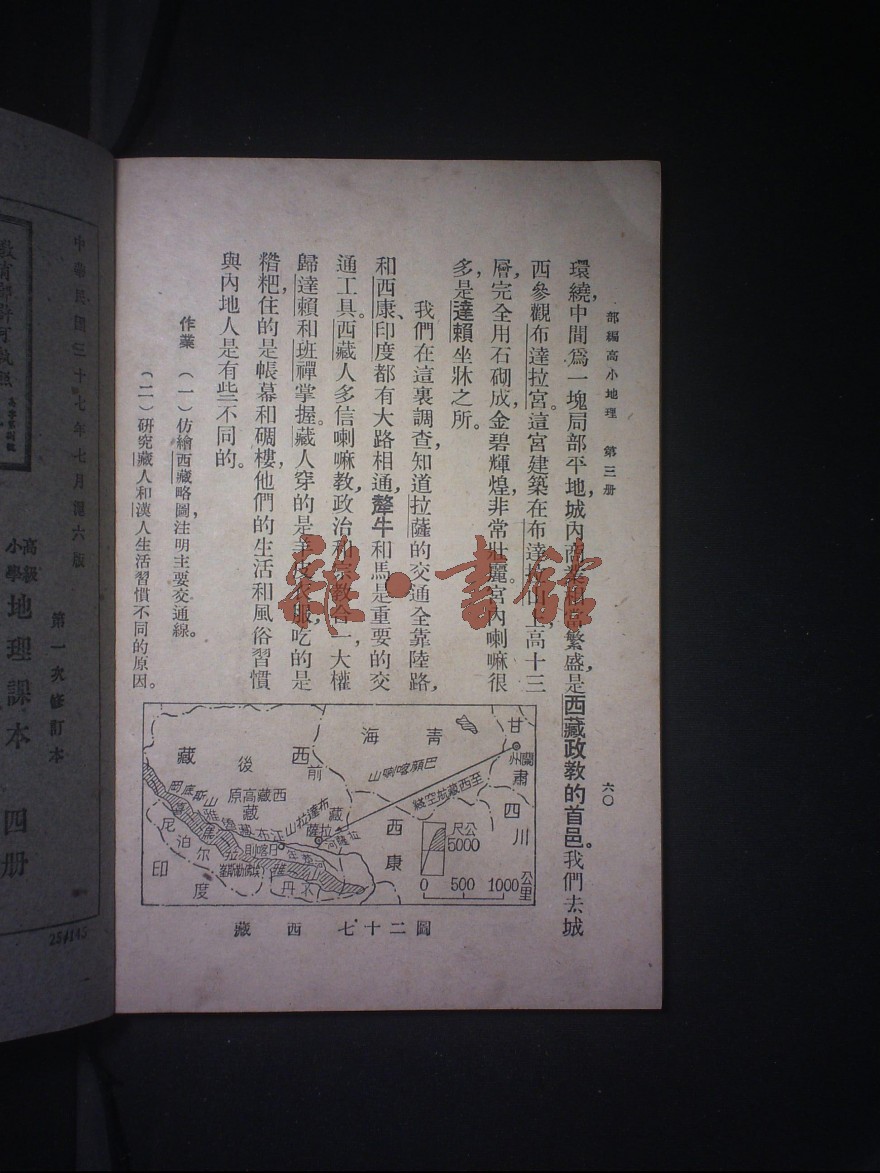 部編高小地理 第三册
六〇
環繞，中間爲一塊局部平地，城內商業相當繁盛，是西藏政教的首邑。我們去城
西參觀布達拉宮。這宮建築在布達拉山上，高十三
層，完全用石砌成，金碧輝煌，非常壯麗。宮內喇嘛很
多，是達賴坐牀之所。
我們在這裏調查，知道拉薩的交通全靠陸路，
和西康、印度都有大路相通，犛牛和馬是重要的交
通工具。西藏人多信喇嘛教，政治和宗教合一，大權
歸達賴和班禪掌握。藏人穿的是羊皮衣服，吃的是
糌粑，住的是帳幕和碉樓，他們的生活和風俗習慣
與內地人是有些不同的。
作業 （一）仿繪西藏略圖，注明主要交通線。
（二）研究藏人和漢人生活習慣不同的原因。
甘肅
蘭州
青海
巴顏喀喇山
至西藏航空綫
四川
西康
西藏
前藏
後藏
西藏高原
岡底斯山
布達拉山
拉薩
拉薩河
江
日喀則
尼泊尔
不丹
印度
公尺
5000
0 500 1000 公里
圖二十七 西藏
中華民國三十七年七月滬六版
第一次修訂本
高級小學 地理課本 四册
教育部許可執照
254145
雜·書館